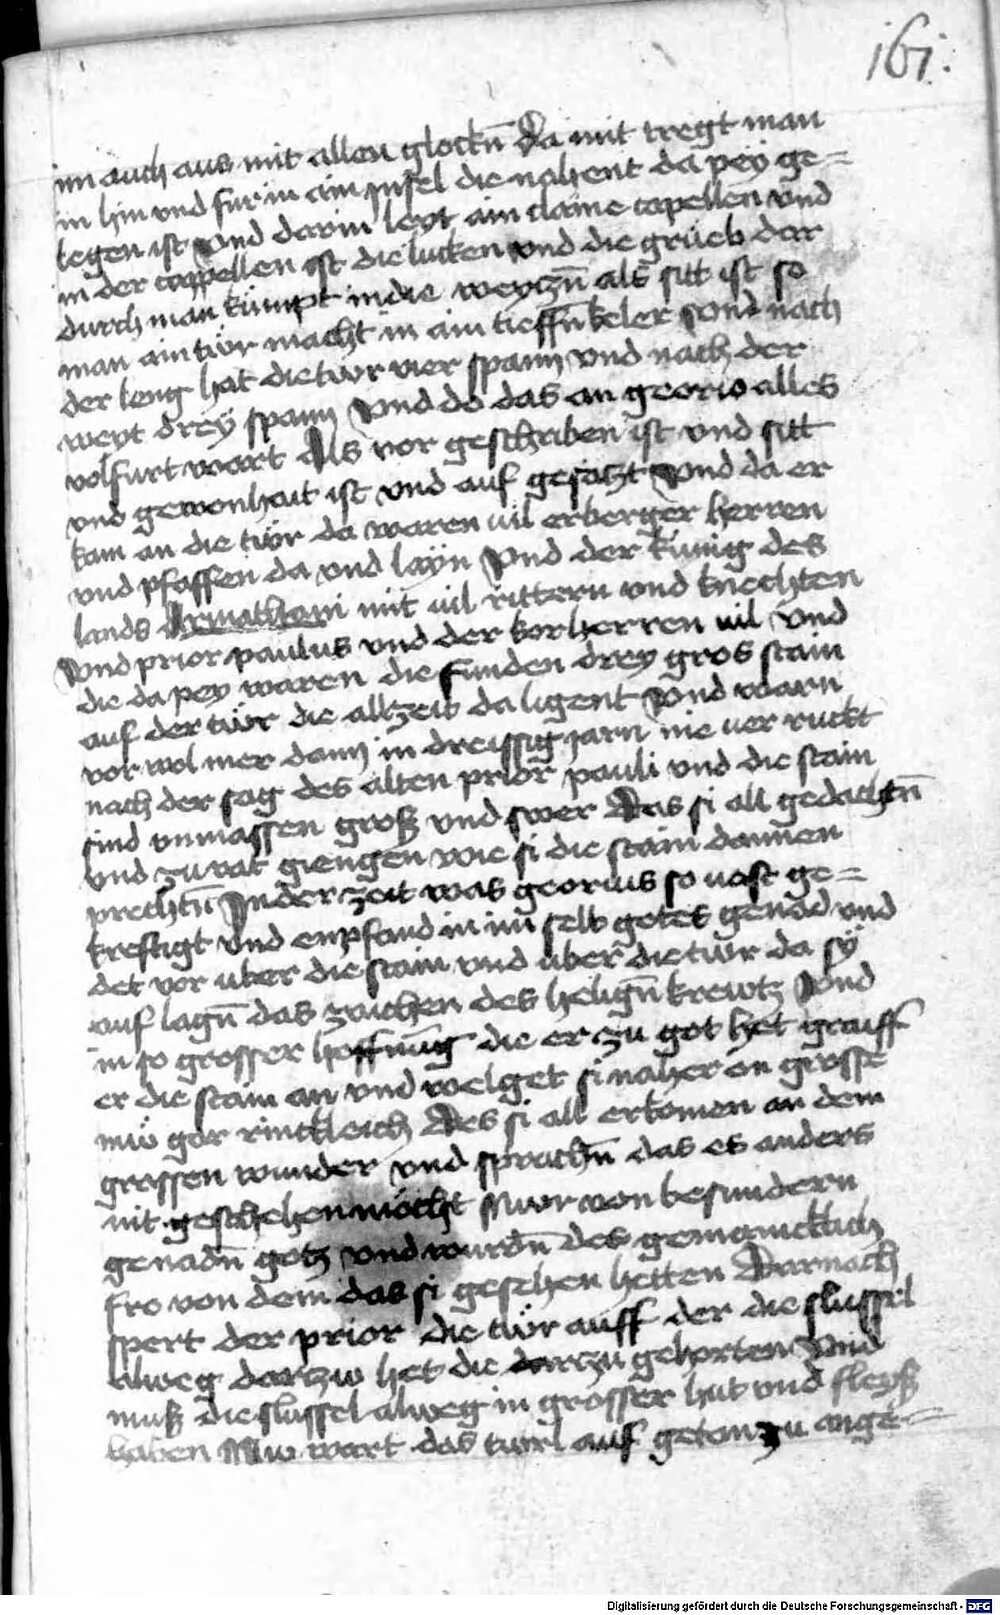 161.
im auch aus mit allen glockn̄ Da mit tregt man
in hin vnd für in ain Insel die nahent da peÿ ge=
legen ist vnd darin leyt ain claine capellen vnd
in der cappellen ist die lucken vnd die grüeb dar
durch man kümpt in die weyczn̄ als sitt ist so
man ain tür macht in ain tieffn̄ keler vnd nach
der leng hat die tür vier spann vnd nach der
weyt drey spann Vnd do das an georio alles
volfurt wart Als vor geschriben ist vnd sitt
vnd gewonhait ist vnd auf gesaczt Vnd da er
kam an die tür da waren vil erberger herren
vnd pfaffen da vnd layn Vnd der künig des
lands mit vil rittern vnd knechten
Vnd prior paulus vnd der korherren vil vnd
die da pey waren die funden drey gros stain
auf der tür die allzeit da ligent Vnd warn
vor wol mer dann in dreissig jarn nie ver ruckt
nach der sag des alten prior pauli vnd die stain
sind vnmassen groß vnd swer Das si all gedachtn̄
vnd zu rat giengen wie si die stain dannen
prechtn̄ In der zeit was georius so vast ge=
kreftigt vnd enpfand in im selb gotes genad vnd
det vor vber die stain vnd vber die tür da sÿ
auf lagn̄ das zaichen des heilign̄ krewtz Vnd
in so grosser hoffnung die er zu got het graiff
er die stain an vnd welget si naher on grosse
mü gar rinckleich Des si all erkomen an dem
grossen wunder vnd sprachn̄ das es anders
nit geschehen möcht Nwr von besundern
genadn̄ gotz vnd wurdn̄ des gemainckleich
fro von dem das si gesehen hetten Darnach
spert der prior die tür auff der die slussel
alweg darczw het die darczu gehorten Vnd
muß die slussel alweg in grosser hut vnd fleyß
haben Nw wart das türl auf getan zu ange=
Digitalisierung gefördert durch die Deutsche Forschungsgemeinschaft - DFG